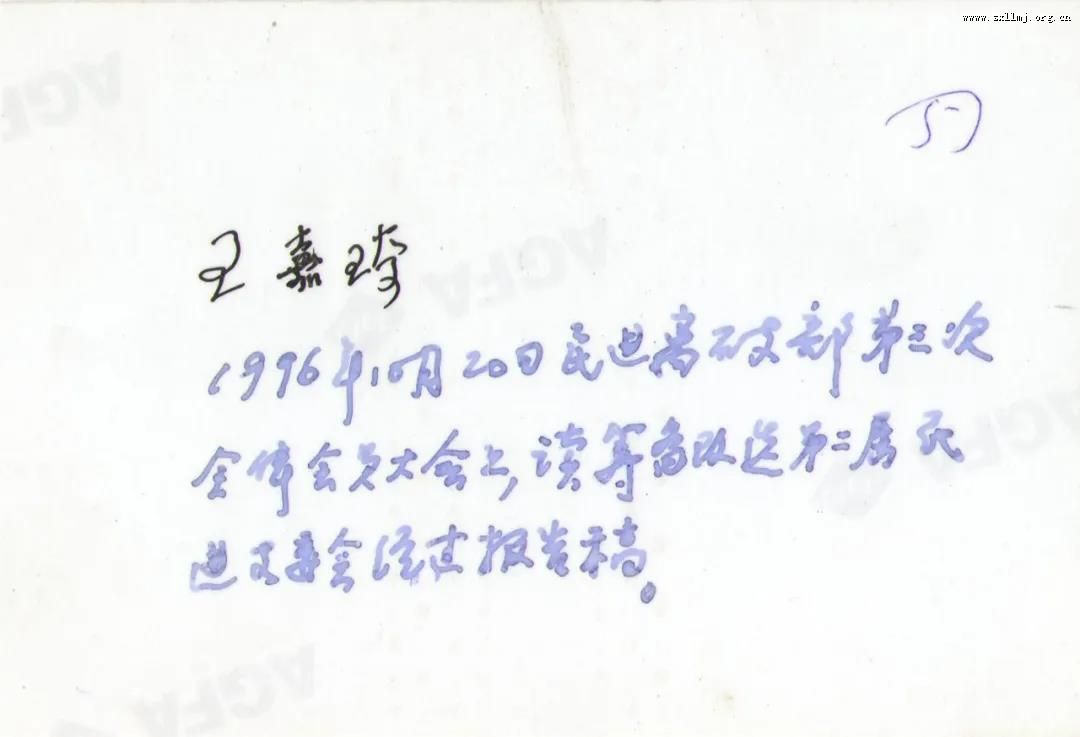 www.sxllmj.org.cn
57
王嘉琦
1996年10月20日民进离石支部第三次
全体会员大会上,读筹备改选第二届民
进支委会经过报告稿。
AGFA
AGFA
AGFA
AGFA